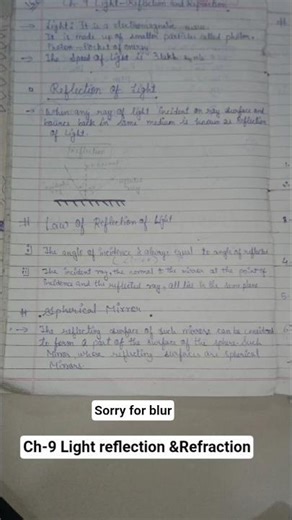 Ch-9 Light-Reflection and Refraction
→ Light: It is a electromagnetic wave.
It is made up of smallest particles called photon.
Photon - Packet of energy
→ The speed of light is
Reflection Of Light
→ When any ray of light incident on any surface and
bounce back in same medium is known as Reflection
of Light.
Law Of Reflection of Light
i) The angle of incidence is always equal to angle of
ii) The incident ray, the normal to the mirror at the point of
incidence and the reflected ray, all lies in the same plane
Spherical Mirror
→ The reflecting surface of such mirrors can be
to form a part of the surface of the sphere. Such
mirror where reflecting surfaces are
Mirrors.
Sorry for blur
Ch-9 Light reflection &Refraction